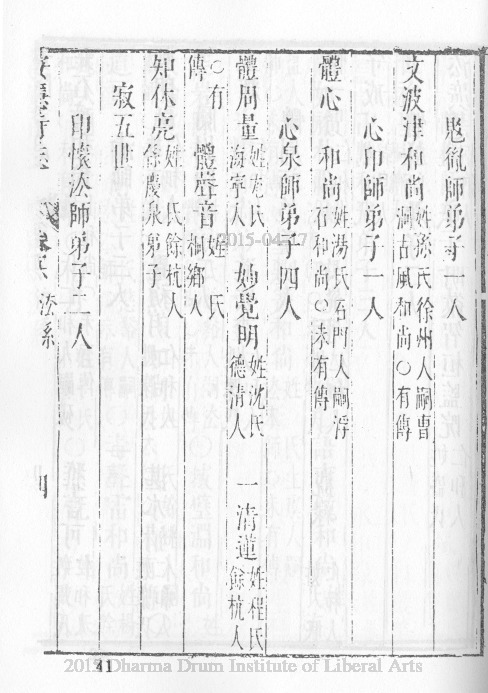 胤師弟子一人
文波津和尚姓孫氏徐州人嗣曹
洞古風和尚○有傳
心印師弟子一人
體心　和尚姓湯氏石門人嗣浮
石和尚○未有傳
心泉師弟子四人
體周量姓尤氏
海寧人　妙覺明姓沈氏
德清人　一清蓮姓程氏
餘杭人
○有
傳　體聲音姓　氏
桐鄉人
知休亮姓　氏餘杭人
餘慶泉弟子
寂五世
印懷法師弟子二人
法系
41
2015-04-17
2015 Dharma Drum Institute of Liberal Arts